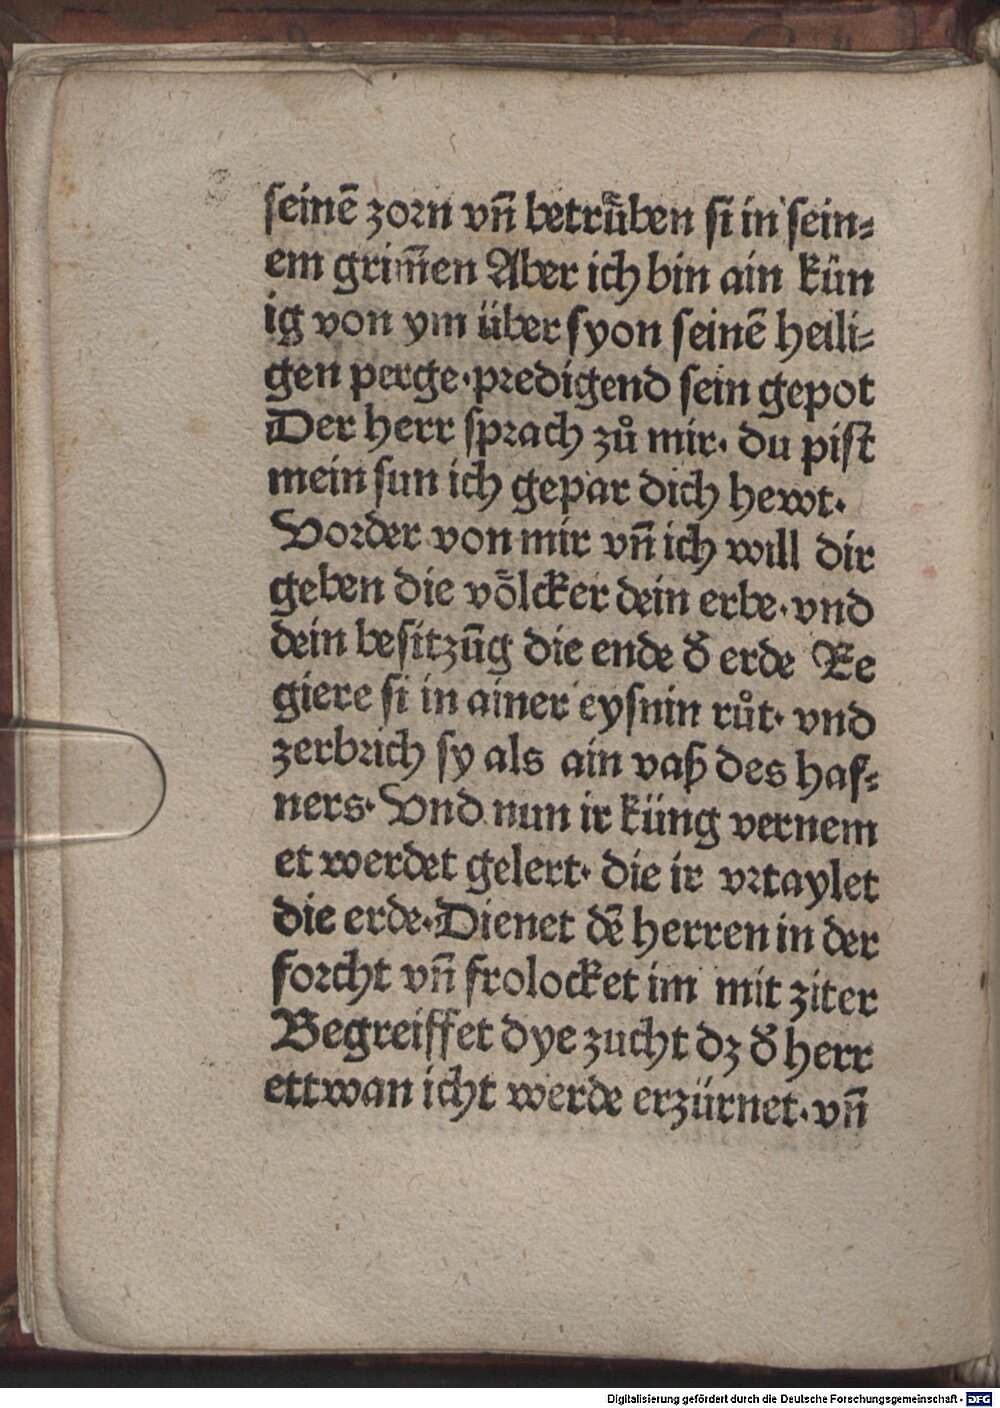 seinē zorn vn̄ betruͤben si in sein⸗
em grim̄en Aber ich bin ain kün
ig von ym über syon seinē heili⸗
gen perge·predigend sein gepot
Der herr sprach zů mir· du pist
mein sun ich gepar dich hewt·
Vorder von mir vn̄ ich will dir
geben die voͤlcker dein erbe·vnd
dein besitzūg die ende d̓ erde Re
giere si in ainer eysnin růt· vnd
zerbrich sy als ain vaß des haf⸗
ners· Vnd nun ir küng vernem
et werdet gelert· die ir vrtaylet
die erde·Dienet dē herren in der
forcht vn̄ frolocket im mit ziter
Begreiffet dye zucht dz d̓ herr
ettwan icht werde erzürnet·vn̄
Digitalisierung gefördert durch die Deutsche Forschungsgemeinschaft - DFG